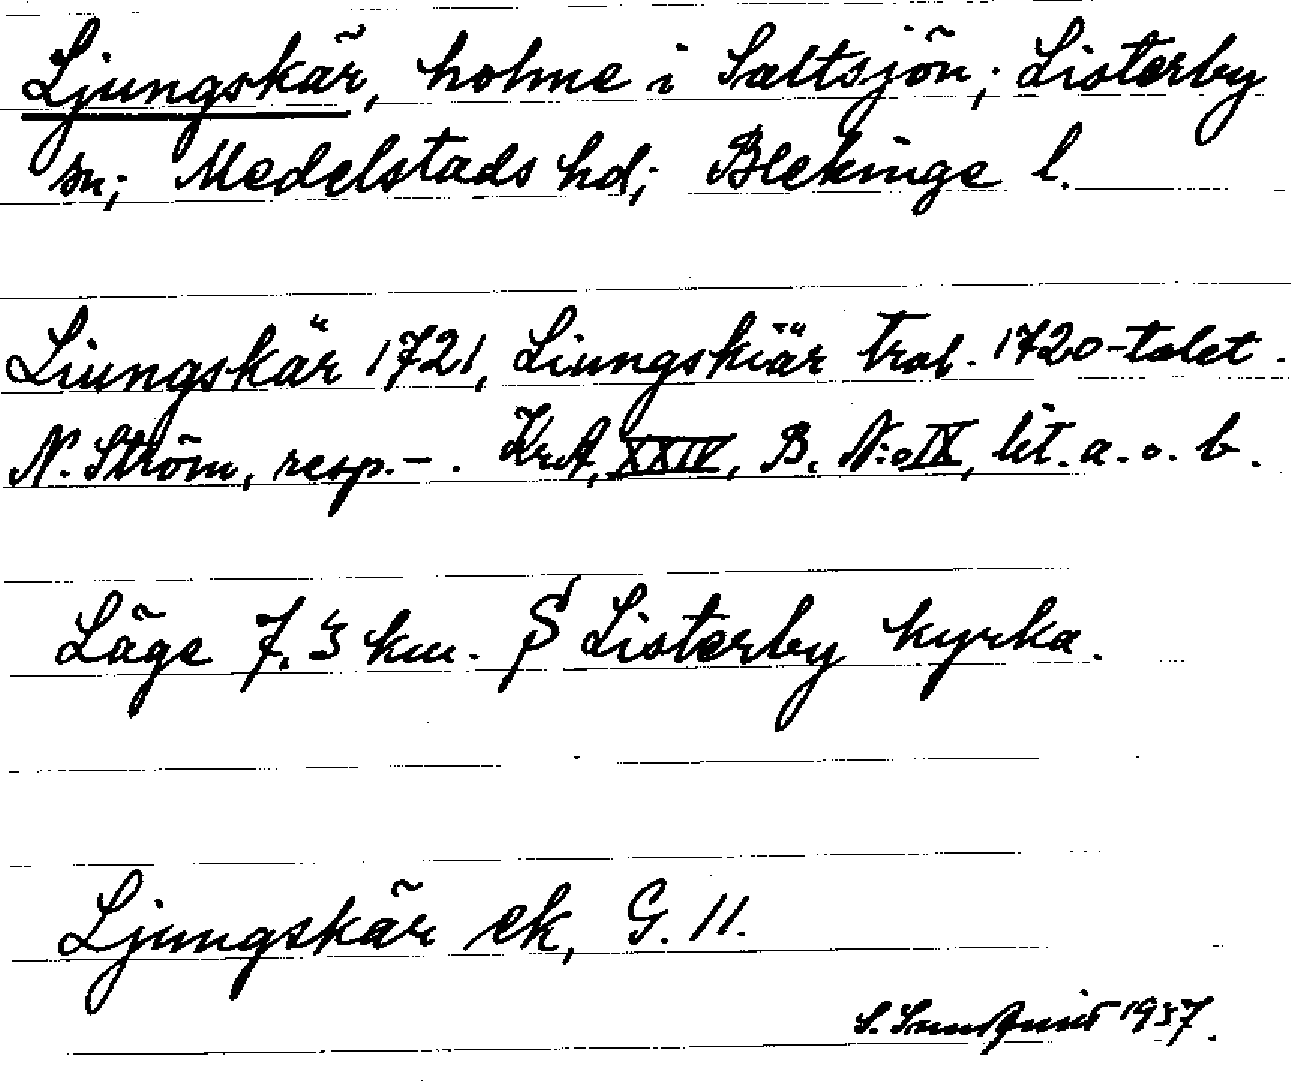 Ljungskär, holme i Saltsjön; Listerby
sn; Medelstads hd; Blekinge l.
Liungskär 1721, Liungskiär trol. 1720-talet.
N. Ström, resp. –. KrA, XXIV, B. N:o IX, lit. a. o. b.
Läge 7,3 km. S Listerby kyrka.
Ljungskär ek, G. 11.
S. Sundquist 1937.